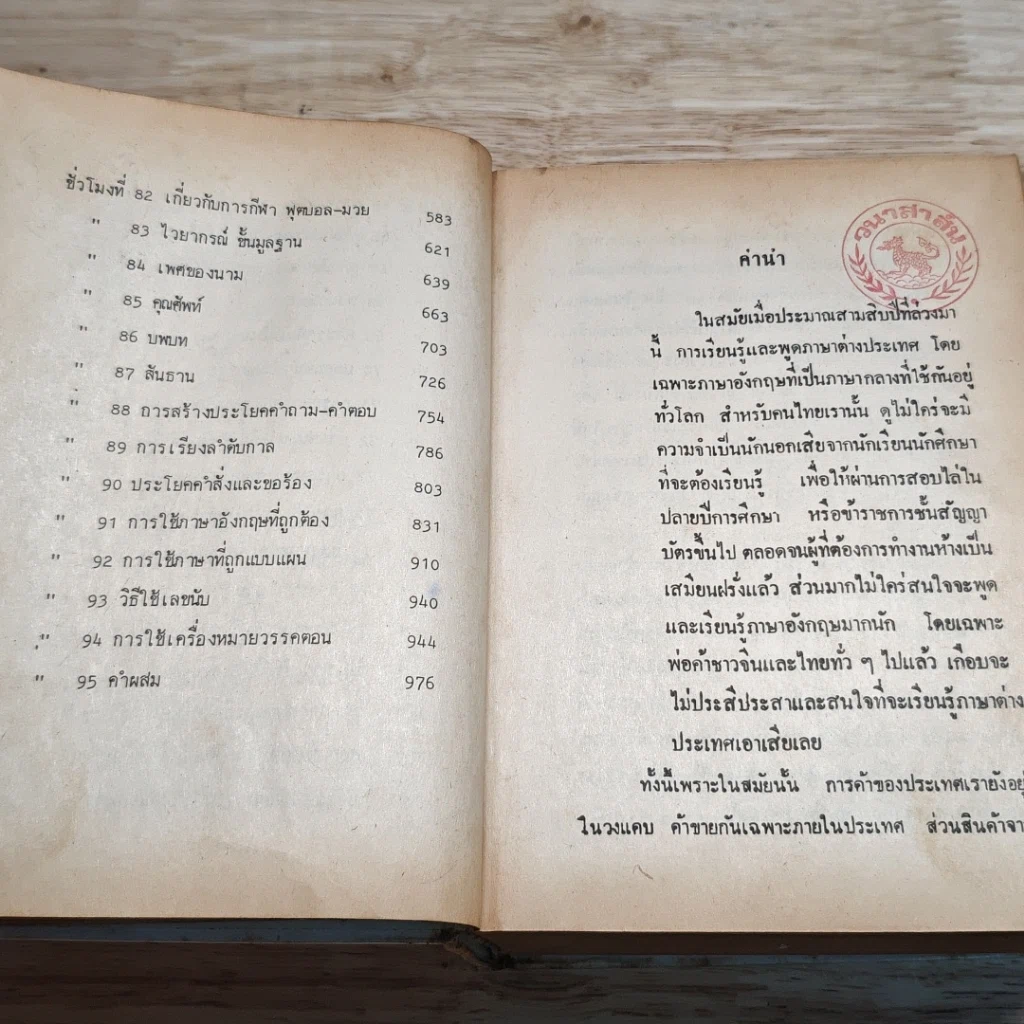 ชั่วโมงที่ 82 เกี่ยวกับการกีฬา ฟุตบอล-มวย 583
" 83 ไวยากรณ์ ขั้นมูลฐาน 621
" 84 เพศของนาม 639
" 85 คุณศัพท์ 663
" 86 บพบท 703
" 87 สันธาน 726
" 88 การสร้างประโยคคำถาม-คำตอบ 754
" 89 การเรียงลำดับกาล 786
" 90 ประโยคคำสั่งและขอร้อง 803
" 91 การใช้ภาษาอังกฤษที่ถูกต้อง 831
" 92 การใช้ภาษาที่ถูกแบบแผน 910
" 93 วิธีใช้เลขนับ 940
" 94 การใช้เครื่องหมายวรรคตอน 944
" 95 คำผสม 976
วนาสาส์น
คำนำ
ในสมัยเมื่อประมาณสามสิบปีที่ล่วงมา
นี้ การเรียนรู้และพูดภาษาต่างประเทศ โดย
เฉพาะภาษาอังกฤษที่เป็นภาษากลางที่ใช้กันอยู่
ทั่วโลก สำหรับคนไทยเรานั้น ดูไม่ใคร่จะมี
ความจำเป็นนักนอกเสียจากนักเรียนนักศึกษา
ที่จะต้องเรียนรู้ เพื่อให้ผ่านการสอบไล่ใน
ปลายปีการศึกษา หรือข้าราชการชั้นสัญญา
บัตรขึ้นไป ตลอดจนผู้ที่ต้องการทำงานห้างเป็น
เสมียนฝรั่งแล้ว ส่วนมากไม่ใคร่สนใจจะพูด
และเรียนรู้ภาษาอังกฤษมากนัก โดยเฉพาะ
พ่อค้าชาวจีนและไทยทั่ว ๆ ไปแล้ว เกือบจะ
ไม่ประสีประสาและสนใจที่จะเรียนรู้ภาษาต่าง
ประเทศเอาเสียเลย
ทั้งนี้เพราะในสมัยนั้น การค้าของประเทศเรายังอยู่
ในวงแคบ ค้าขายกันเฉพาะภายในประเทศ ส่วนสินค้าจา